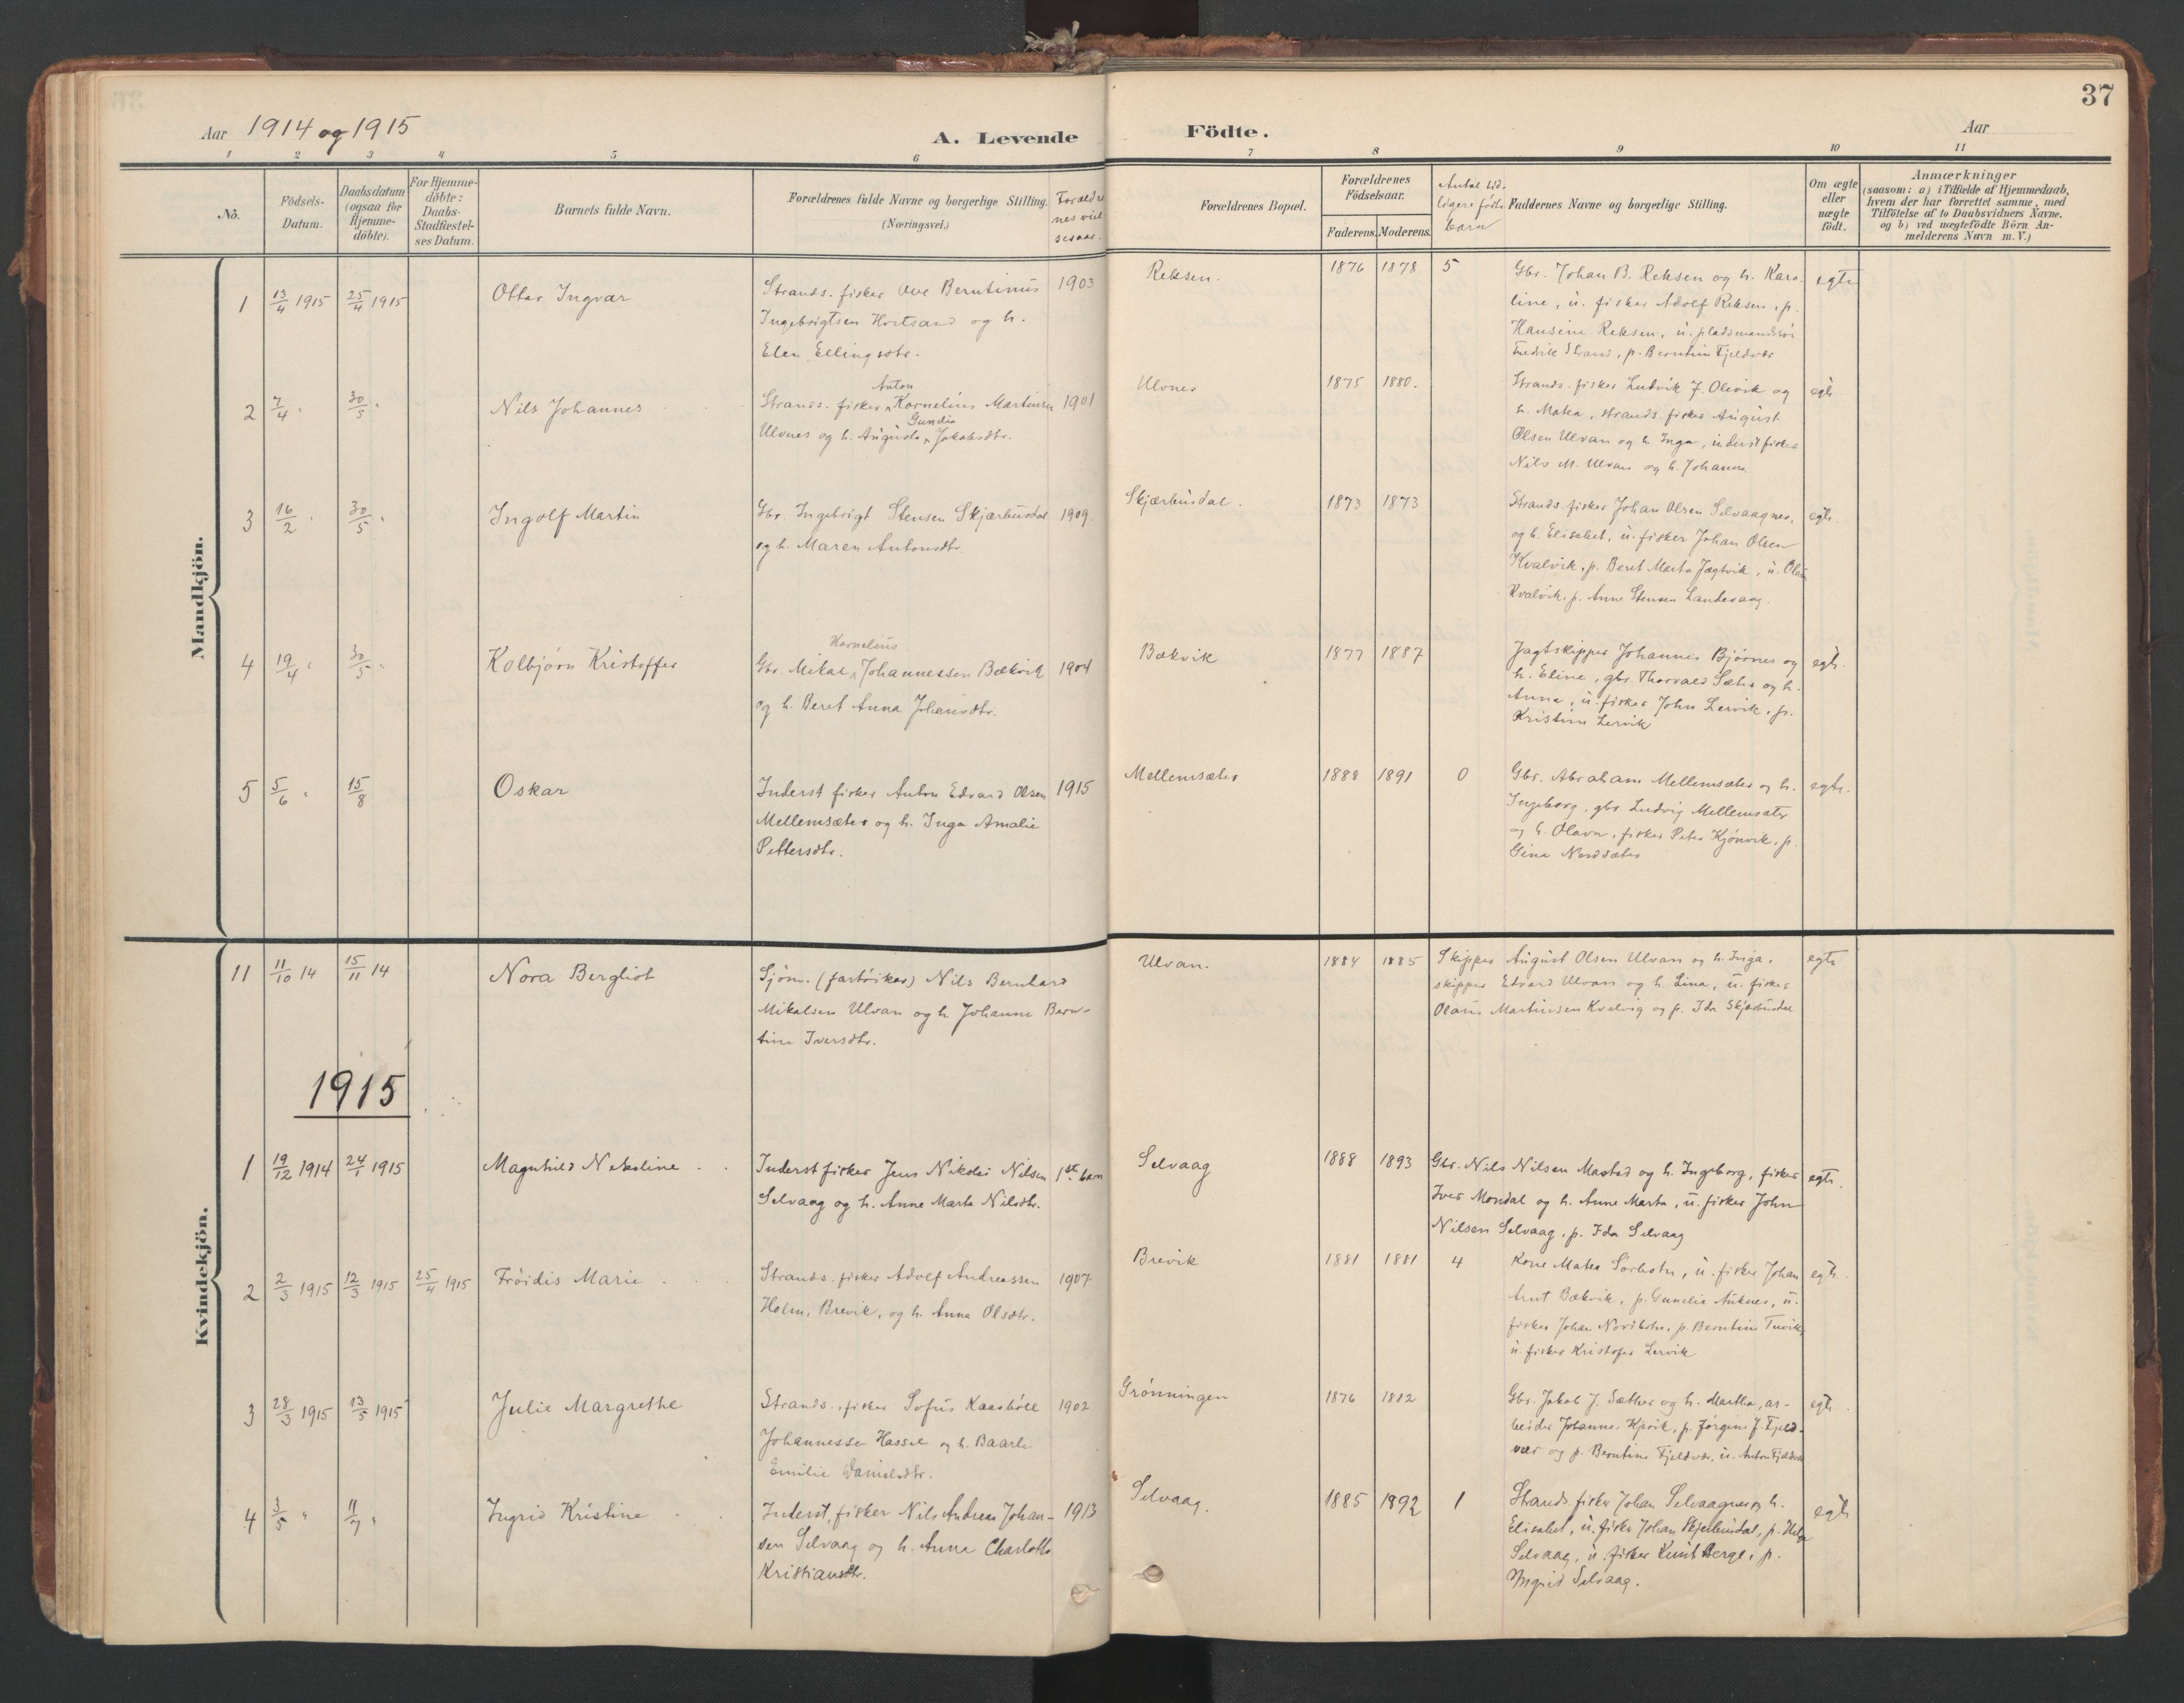 37
Aar 1914 og 1915
A. Levende Födte.
Aar
1 2 3 4 5 6 7 8 9 10 11
No.
Födsels-
Datum.
Daabsdatum
(ogsaa for
Hjemme-
döbte).
For Hjemme-
döbte:
Daabs-
Stadfæstel-
ses Datum.
Barnets fulde Navn.
Forældrenes fulde Navne og borgerlige Stilling.
(Næringsvei.)
Forældre
nes viel
sesaar.
Forældrenes Bopæl.
Forældrenes
Födselsaar.
Faderens. Moderens.
Antal tid-
ligere födte
barn
Faddernes Navne og borgerlige Stilling.
Om ægte
eller
uægte
födt.
Anmærkninger
(saasom: a) i Tilfælde af Hjemmedaab,
hvem der har forrettet samme, med
Tilföielse af to Daabsvidners Navne.
og b) ved uægtefödte Börn An-
melderens Navn m. V.)
Mandkjön.
1 13/4 1915 25/4 1915
Ottar Ingvar
Strands. fisker Ove Berntinus
Ingebrigtsen Hortsand og h.
Elen Ellingsdtr.
1903
Reksen.
1876 1878 5
Gbr. Johan B. Reksen og h. Karo-
line, u. fisker Adolf Reksen, p.
Hansine Reksen, u. pladsmandssön
Fredrik Strand, p. Berntine Fjeldvær
egte
2 7/4 " 30/5 "
Nils Johannes
Anton
Strands. fisker Kornelius Martinsen
Gundia
Ulvnes og h. Augusta Jakobsdtr.
1901
Ulvnes
1875 1880.
Strands. fisker Ludvik J. Olevik og
h. Matea, strands. fisker August
Olsen Ulvan og h. Inga, inderst fisker
Nils M. Ulvan og h. Johanna
egte
3 16/2 " 30/5 "
Ingolf Martin
Gbr. Ingebrigt Stensen Skjærbusdal
og h. Maren Antonsdtr.
1909.
Skjærbusdal.
1873 1873
Strands. fisker Johan Olsen Selvaagnes,
og h. Elisabet, u. fisker Johan Olsen
Kvalvik, p. Beret Marta Jægtvik, u. Olaus
Kvalvik, p. Anne Stensen Landevaag.
egte.
4 19/4 " 30/5 "
Kolbjørn Kristoffer
Kornelius
Gbr. Mikal Johannessen Bækvik
og h. Beret Anna Johansdtr.
1904
Bækvik
1877 1887
Jagtskipper Johannes Bjørnes og
h. Eline, gbr. Thorvald Sæter og h.
Anna, u. fisker John Lervik, p.
Kristine Lervik
egte.
5 5/6 " 15/8
Oskar
Inderst fisker Anton Edvard Olsen
Mellemsæter og h. Inga Amalie
Pettersdtr.
1915
Mellemsæter
1888 1891 0
Gbr. Abraham Mellemsæter og h.
Ingeborg, gbr. Ludvig Mellemsæter
og h. Olava, fisker Peter Kjönvik, p.
Gina Nordsæter
egte.
Kvindekjön.
11 11/10 14 15/11 14
Nora Bergliot
Sjöm. (fartöiker) Nils Bernhard
Mikalsen Ulvan og h. Johanna Bern-
tine Iversdtr.
Ulvan.
1884 1885
Skipper August Olsen Ulvan og h. Inga,
skipper Edvard Ulvan og h. Lina, u. fisker
Olaus Martinsen Kvalvig og p. Ida Skjærbusdal
egte
1915
1 19/12 1914 24/1 1915
Magnhild Nikoline
Inderst fisker Jens Nikolai Nilsen
Selvaag og h. Anne Marta Nilsdtr.
1ste barn
Selvaag
1888 1893
Gbr. Nils Nilsen Mastad og h. Ingeborg, fisker
Iver Mondal og h. Anne Marta, u. fisker John
Nilsen Selvaag, p. Ida Selvaag
egte.
2 2/3 1915 12/3 1915 25/4 1915
Fröidis Marie
Strands. fisker Adolf Andreassen
Holm, Brevik, og h. Anna Olsdtr.
1907
Brevik
1881 1881 4
Kone Matea Sörholm, u. fisker Johan
Arnt Bækvik, p. Gunelie Auknes, u.
fisker Johan Nordholm, p. Berntine Tuvik,
u. fisker Kristofer Lervik
egte.
3 28/3 1915 13/5 1915
Julie Margrethe
Strands., fisker Sofus Kaasböll
Johannessen Hassel og h. Baarle
Emilie Danielsdtr.
1902
Grönningen
1876 1882
Gbr. Jakob J. Sæther og h. Martha, ar-
beider Johannes, p. Jörgine J. Fjeld-
vær og p. Berntine Fjeldvær, u. Anton Fjeldvær
egte
4 3/5 " 11/7 "
Ingrid Kristine
Inderst, fisker Nils Andreas Johan-
sen Selvaag og h. Anna Charlotte
Kristiansdtr.
1913
Selvaag.
1885 1892 1
Strands. fisker Johan Selvaagnes og h.
Elisabet, u. fisker Johan Skjærbusdal, p. Helga
Selvaag, u. fisker Knut Berge, p.
Ingrid Selvaag.
egte